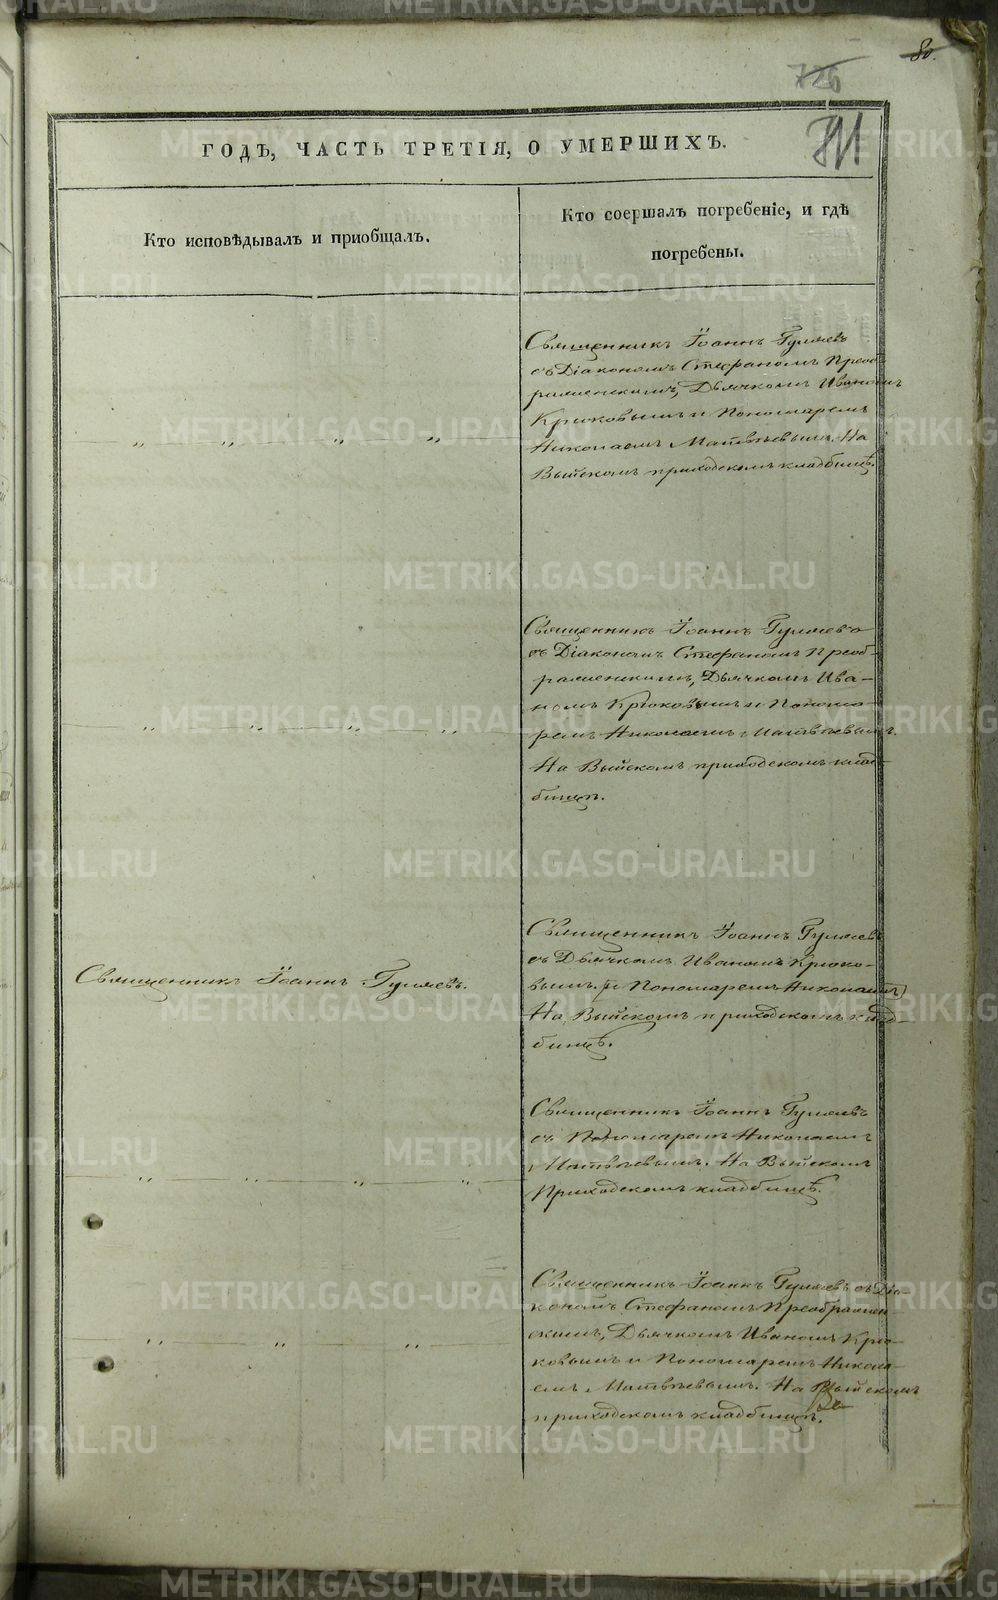 80.
726
ГОДЪ, ЧАСТЬ ТРЕТІЯ, О УМЕРШИХЪ.
Кто исповѣдывалъ и приобщалъ.
Кто соершалъ погребеніе, и гдѣ
погребены.
Священникъ Іоаннъ Гуляевъ
съ Діакономъ Стефаномъ Преоб-
раженскимъ, Дьячкомъ Иваномъ
Крюковымъ и Пономаремъ
Николаемъ Матвѣевымъ. На
Выйскомъ приходскомъ кладбищѣ.
„ „ „ „
Священникъ Іоаннъ Гуляевъ
съ Діакономъ Стефаномъ Преоб-
раженскимъ, Дьячкомъ Ива-
номъ Крюковымъ и Понома-
ремъ Николаемъ Матвѣевымъ.
На Выйскомъ приходскомъ клад-
бищѣ.
„ „ „ „
Священникъ Іоаннъ Гуляевъ.
Священникъ Іоаннъ Гуляевъ
съ Дьячкомъ Иваномъ Крюко-
вымъ (и Пономаремъ Николаемъ)
На Выйскомъ приходскомъ клад-
бищѣ.
Священникъ Іоаннъ Гуляевъ
съ Пономаремъ Николаемъ
Матвѣевымъ. На Выйскомъ
Приходскомъ кладбищѣ.
„ „ „ „
Священникъ Іоаннъ Гуляевъ съ Діа-
кономъ Стефаномъ Преображен
скимъ, Дьячкомъ Иваномъ Крю-
ковымъ и Пономаремъ Никола-
емъ Матвѣевымъ. На Выйскомъ
приходскомъ кладбищѣ.
„ „ „
METRIKI.GASO-URAL.RU